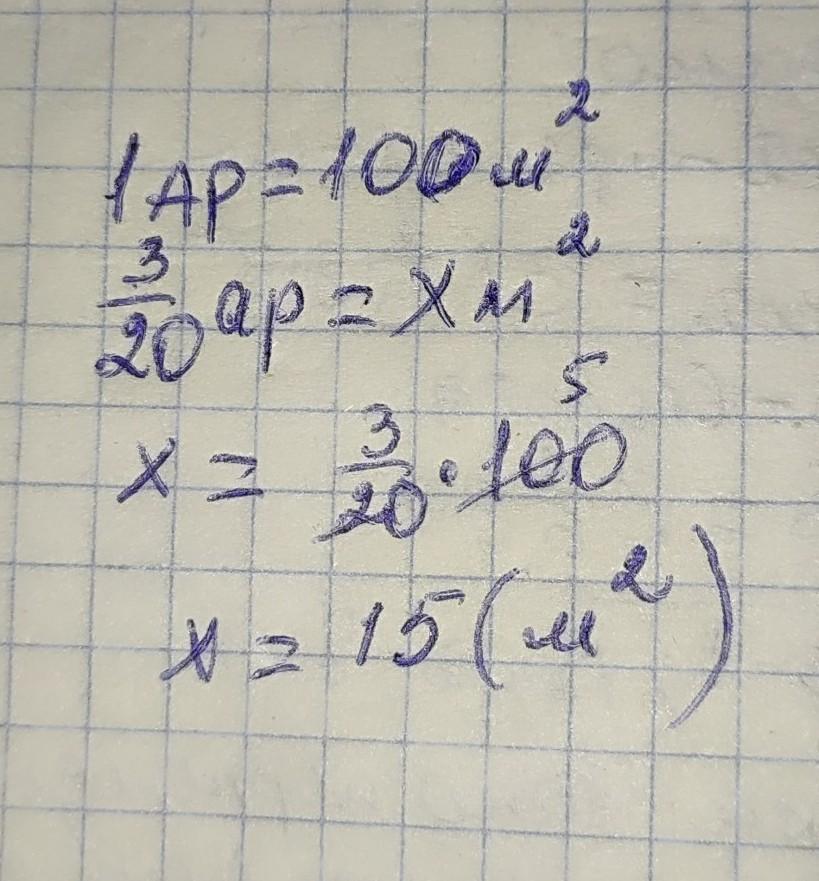 1 АР = 100 м²
3/20 ар = x м²
x = 3/20 · 100 5
x = 15 (м²)